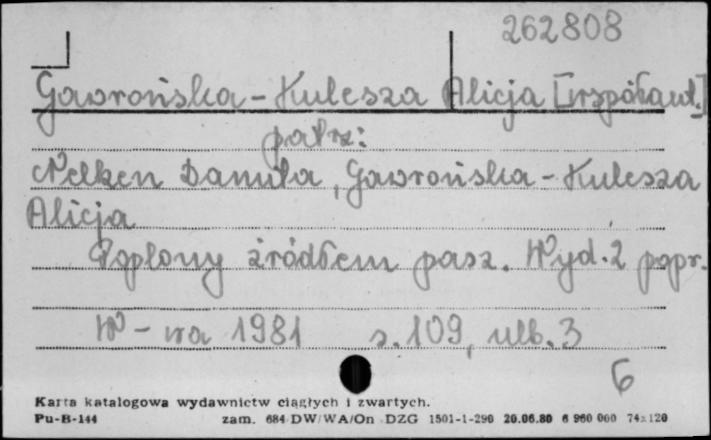 262808
Gawrońska-Kulesza Alicja [współaut.]
patrz:
Nelken Danuta, Gawrońska-Kulesza
Alicja
Poplony źródłem pasz. Wyd. 2 popr.
W-wa 1981 s. 109, nlb. 3
6
Karta katalogowa wydawnictw ciągłych i zwartych.
Pu-B-144 zam. 684 DW/WA/On DZG 1501-1-290 20.06.80 6 960 000 74x120